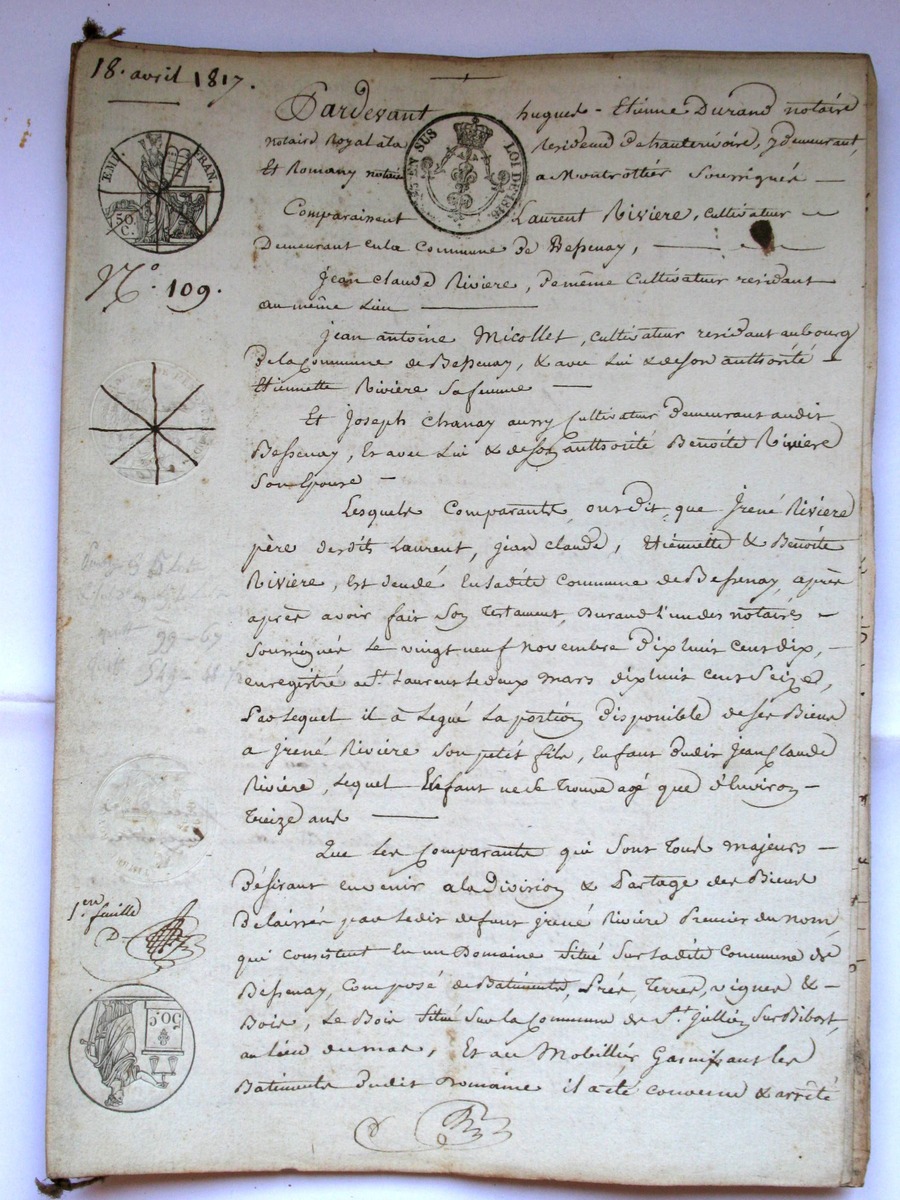 18. avril 1817.
Pardevant hugues - Etienne Durand notaire
notaire Royal à la Residence de hauterivoire, y demeurant,
Et Romany notaire a Montrottier Soussignés —
Comparaissent Laurent Riviere, cultivateur —
Demeurant en la Commune de Bessenay, —
EMP. FRAN.
50 C.
EN SUS LOI DE 1816.
N.o 109.
Jean Claude Riviere, De même Cultivateur residant
au même Lieu —
Jean antoine Micollet, cultivateur residant au bourg
De la Commune de Bessenay, & avec Lui & de son authorité —
Etiennette Rivière sa femme —
Et Joseph Chanay aussy Cultivateur Demeurant audit
Bessenay, Et avec Lui & de son authorité Benoite Riviere
Son Epouse —
Lesquels Comparants ont dit que Irené Riviere
père desdits Laurent, Jean Claude, Etiennette & Benoite
Rivière, est décédé En ladite Commune de Bessenay, après
après avoir fait Son Testament, Durand l'un des notaires —
Soussignés Le vingt neuf Novembre Dix huit Cent dix, —
enregistré a St. Laurent Le deux Mars dix huit Cent Seize,
Par Lequel il à Legué La portion Disponible de Ses Biens
a Irené Rivière Son petit fils, Enfant dudit Jean Claude
Rivière, Lequel Enfant ne Se Trouve agé que d'Environ —
Treize ans —
99 - 67
Que Les Comparants qui Sont Tous Majeurs —
Désirant en venir a la Division & Partage des Biens
Délaissés par Ledit defunt Irené Rivière Premier du nom
qui Consistent En un Domaine Situé Sur ladite Commune de
Bessenay, Composé de Batiments, Prés, Terres, vignes & —
Bois, Le Bois Situé Sur la Commune de St. Jullien Sur Bibost,
au Lieu du mas, Et au Mobillier Garnissant les
Batiments dudit Domaine il a été convenu & arrêté
1.ere feuille
D
50 C.